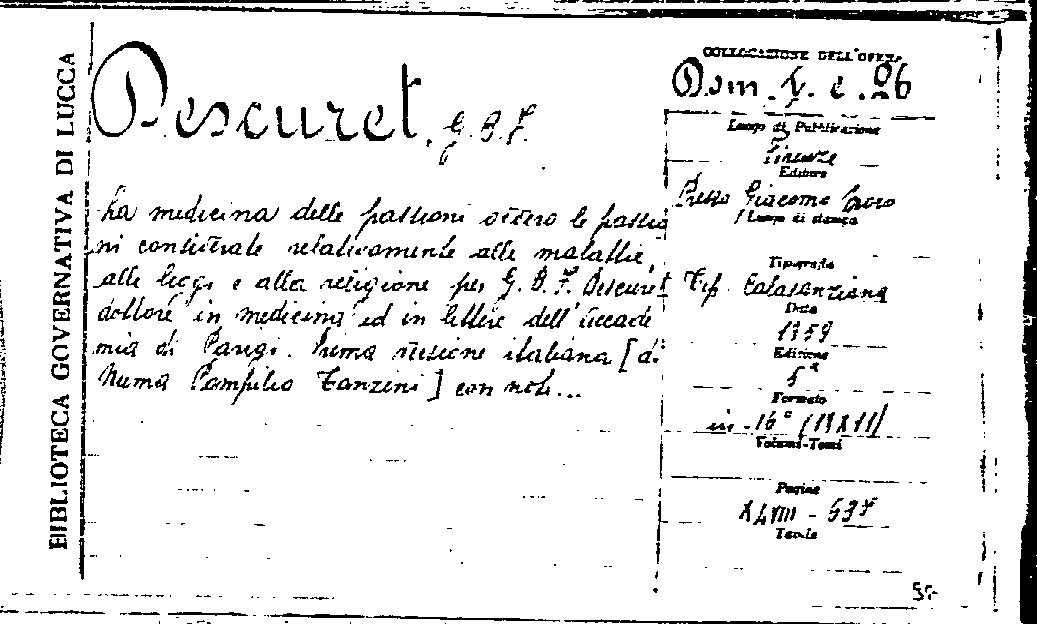 BIBLIOTECA GOVERNATIVA DI LUCCA
Descuret, G. B. F.
La medicina delle passioni ovvero le passio
ni considerate relativamente alle malattie,
alle leggi e alla religione per G. B. F. Descuret
dottore in medicina ed in lettere dell'Accade
mia di Parigi. Prima versione italiana [di
Numa Pompilio Tanzini] con note...
COLLOCAZIONE DELL'OPERA
Luogo di Pubblicazione
Firenze
Editore
Presso Giacomo
Luogo di stampa
Tipografia
Tip. Calasanziana
Data
1859
Edizione
5ª
Formato
in-16°
Volumi-Tomi
Pagine
XLVIII - 537
Tavole